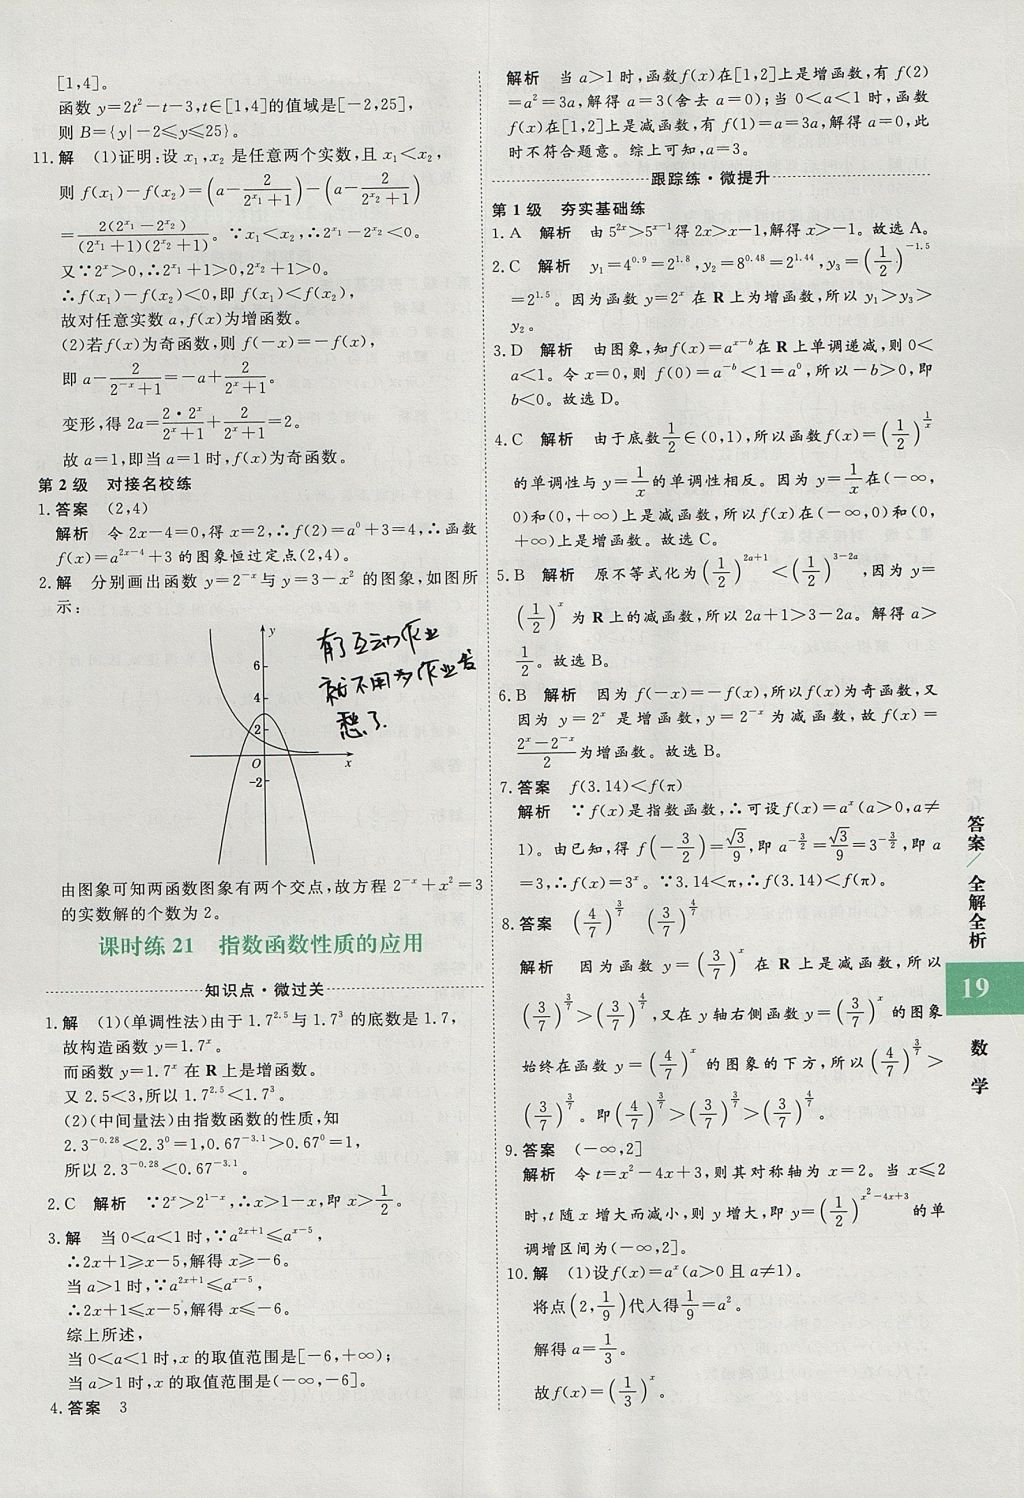 [1,4]。
函数 y=2t²-t-3,t∈[1,4]的值域是[-2,25],
则 B={y|-2≤y≤25}。
11.解 (1)证明:设 x₁,x₂ 是任意两个实数,且 x₁<x₂,
则 f(x₁)-f(x₂)=(a-2/(2^x₁+1))-(a-2/(2^x₂+1))
=2(2^x₁-2^x₂)/((2^x₁+1)(2^x₂+1))。∵x₁<x₂,∴2^x₁-2^x₂<0。
又∵2^x>0,∴2^x₁+1>0,2^x₂+1>0。
∴f(x₁)-f(x₂)<0,即 f(x₁)<f(x₂),
故对任意实数 a,f(x)为增函数。
(2)若 f(x)为奇函数,则 f(-x)=-f(x),
即 a-2/(2^-x+1)=-a+2/(2^x+1)。
变形,得 2a=2·2^x/(2^x+1)+2/(2^x+1)=2。
故 a=1,即当 a=1 时,f(x)为奇函数。
第 2 级 对接名校练
1.答案 (2,4)
解析 令 2x-4=0,得 x=2,∴f(2)=a⁰+3=4,∴函数
f(x)=a^(2x-4)+3 的图象恒过定点(2,4)。
2.解 分别画出函数 y=2^-x 与 y=3-x² 的图象,如图所
示:
y
6
4
2
O
x
-2
有了互动作业
就不用为作业发
愁了
由图象可知两函数图象有两个交点,故方程 2^-x+x²=3
的实数解的个数为 2。
课时练 21 指数函数性质的应用
知识点·微过关
1.解 (1)(单调性法)由于 1.7^2.5 与 1.7³ 的底数是 1.7,
故构造函数 y=1.7^x。
而函数 y=1.7^x 在 R 上是增函数。
又 2.5<3,所以 1.7^2.5<1.7³。
(2)(中间量法)由指数函数的性质,知
2.3^-0.28<2.3⁰=1,0.67^-3.1>0.67⁰=1,
所以 2.3^-0.28<0.67^-3.1。
2.C 解析 ∵2^x>2^(1-x),∴x>1-x,即 x>1/2。
3.解 当 0<a<1 时,∵a^(2x+1)≤a^(x-5),
∴2x+1≥x-5,解得 x≥-6。
当 a>1 时,∵a^(2x+1)≤a^(x-5),
∴2x+1≤x-5,解得 x≤-6。
综上所述,
当 0<a<1 时,x 的取值范围是[-6,+∞);
当 a>1 时,x 的取值范围是(-∞,-6]。
4.答案 3
解析 当 a>1 时,函数 f(x)在[1,2]上是增函数,有 f(2)
=a²=3a,解得 a=3(舍去 a=0);当 0<a<1 时,函数
f(x)在[1,2]上是减函数,有 f(1)=a=3a,解得 a=0,此
时不符合题意。综上可知,a=3。
跟踪练·微提升
第 1 级 夯实基础练
1.A 解析 由 5^2x>5^(x-1)得 2x>x-1,解得 x>-1。故选 A。
2.C 解析 y₁=4^0.9=2^1.8,y₂=8^0.48=2^1.44,y₃=(1/2)^-1.5
=2^1.5。因为函数 y=2^x 在 R 上为增函数,所以 y₁>y₃>
y₂。
3.D 解析 由图象,知 f(x)=a^(x-b)在 R 上单调递减,则 0<
a<1。令 x=0,则 f(0)=a^-b<1=a⁰,所以-b>0,即
b<0。故选 D。
4.C 解析 由于底数1/2∈(0,1),所以函数 f(x)=(1/2)^(1/x)
的单调性与 y=1/x的单调性相反。因为 y=1/x在(-∞,
0)和(0,+∞)上是减函数,所以 f(x)在(-∞,0)和(0,
+∞)上是增函数。故选 C。
5.B 解析 原不等式化为(1/2)^(2a+1)<(1/2)^(3-2a),因为 y=
(1/2)^x 为 R 上的减函数,所以 2a+1>3-2a。解得 a>
1/2。故选 B。
6.B 解析 因为 f(-x)=-f(x),所以 f(x)为奇函数,又
因为 y=2^x 是增函数,y=2^-x 为减函数,故 f(x)=
(2^x-2^-x)/2为增函数。故选 B。
7.答案 f(3.14)<f(π)
解析 ∵f(x)是指数函数,∴可设 f(x)=a^x(a>0,a≠
1)。由已知,得 f(-3/2)=√3/9,即 a^(-3/2)=√3/9=3^(-3/2),即 a
=3,∴f(x)=3^x。∵3.14<π,∴f(3.14)<f(π)。
8.答案 (4/7)^(3/7) (3/7)^(4/7)
解析 因为函数 y=(3/7)^x 在 R 上是减函数,所以
(3/7)^(3/7)>(3/7)^(4/7),又在 y 轴右侧函数 y=(3/7)^x 的图象
始终在函数 y=(4/7)^x 的图象的下方,所以(4/7)^(3/7)>
(3/7)^(3/7)。即(4/7)^(3/7)>(3/7)^(3/7)>(3/7)^(4/7)。
9.答案 (-∞,2]
解析 令 t=x²-4x+3,则其对称轴为 x=2。当 x≤2
时,t 随 x 增大而减小,则 y 增大,即 y=(1/2)^(x²-4x+3)的单
调增区间为(-∞,2]。
10.解 (1)设 f(x)=a^x(a>0 且 a≠1)。
将点(2,1/9)代人得1/9=a²。
解得 a=1/3。
故 f(x)=(1/3)^x。
答案/全解全析
19
数学